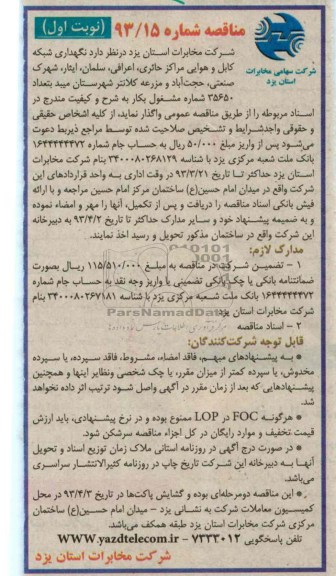 مناقصه شماره ۹۳/۱۵ (نوبت اول)
شرکت سهامی مخابرات
استان یزد
شرکت مخابرات استان یزد درنظر دارد نگهداری شبکه
کابل و هوایی مراکز حائری، اعرافی، سلمان، ایثار، شهرک
صنعتی، حجت‌آباد و مزرعه کلانتر شهرستان میبد بتعداد
۳۵۶۵۰ شماره مشغول بکار به شرح و کیفیت مندرج در
اسناد مربوطه را از طریق مناقصه عمومی واگذار نماید، از کلیه اشخاص حقیقی
و حقوقی واجدشرایط و تشخیص صلاحیت شده توسط مراجع ذیربط دعوت
می‌شود پس از واریز مبلغ ۵۰/۰۰۰ ریال به حساب جام شماره ۱۶۴۴۴۴۴۴۷۲
بانک ملت شعبه مرکزی یزد با شناسه ۳۴۰۰۰۸۰۲۶۸۱۲۹ بنام شرکت مخابرات
استان یزد حداکثر تا تاریخ ۹۳/۳/۲۱ در وقت اداری به واحد قراردادهای این
شرکت واقع در میدان امام حسین(ع) ساختمان مرکز امام حسین مراجعه و با ارائه
فیش بانکی اسناد مناقصه را دریافت و پس از تکمیل، آنها را مهر و امضاء نموده
و به ضمیمه پیشنهاد خود و سایر مدارک حداکثر تا تاریخ ۹۳/۴/۲ به دبیرخانه
این شرکت واقع در ساختمان مذکور تحویل و رسید اخذ نمایند.
مدارک لازم:
۱ – تضمین شرکت در مناقصه به مبلغ ۱۱۵/۵۱۰/۰۰۰ ریال بصورت
ضمانتنامه بانکی یا چک بانکی تضمینی یا واریز وجه نقد به حساب جام شماره
۱۶۴۴۴۴۴۴۷۲ بانک ملت شعبه مرکزی یزد با شناسه ۳۴۰۰۰۸۰۲۶۷۱۸۱ بنام
شرکت مخابرات استان یزد
۲ – اسناد مناقصه
ParsNamadData
قابل توجه شرکت‌کنندگان:
● به پیشنهادهای مبهم، فاقد امضاء، مشروط، فاقد سپرده، یا سپرده
مخدوش، یا سپرده کمتر از میزان مقرر، یا چک شخصی ونظایر اینها و همچنین
پیشنهادهایی که بعد از زمان مقرر در آگهی واصل شود ترتیب اثر داده نخواهد
شد.
● هرگونه FOC در LOP ممنوع بوده و در نرخ پیشنهادی، باید ارزش
قیمت تخفیف و موارد رایگان در کل اجزاء مناقصه سرشکن شود.
● در صورت درج آگهی در روزنامه استانی ملاک زمان توزیع اسناد و تحویل
آنها به دبیرخانه این شرکت تاریخ چاپ در روزنامه کثیرالانتشار سراسری
می‌باشد.
● این مناقصه دومرحله‌ای بوده و گشایش پاکت‌ها در تاریخ ۹۳/۴/۳ در محل
کمیسیون معاملات شرکت به نشانی یزد – میدان امام حسین(ع) ساختمان
مرکزی شرکت مخابرات استان یزد طبقه همکف می‌باشد.
تلفن پاسخگویی ۷۲۳۳۰۱۲ – WWW.yazdtelecom.ir
شرکت مخابرات استان یزد